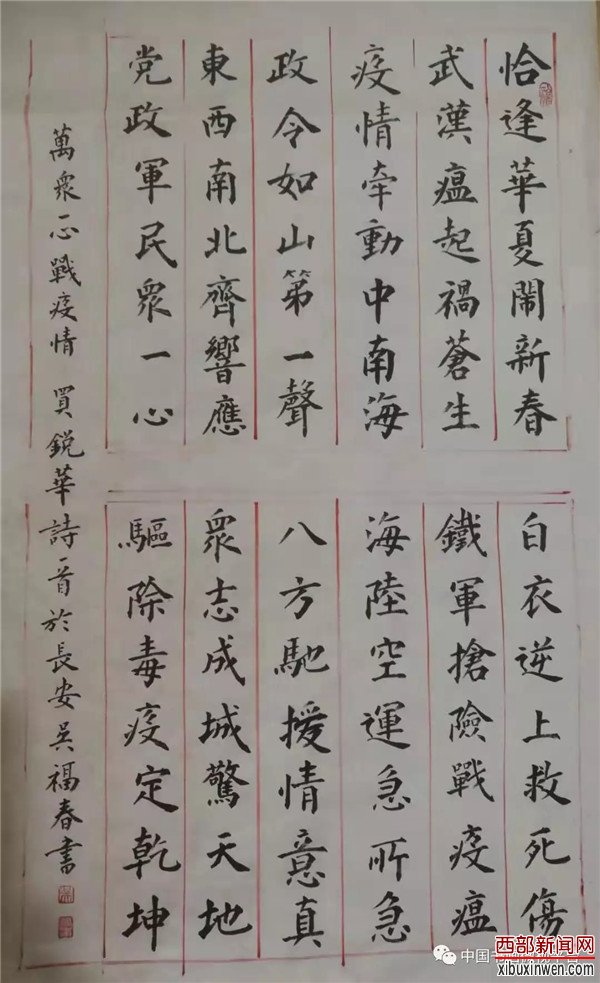 恰逢華夏鬧新春
武漢瘟起禍蒼生
疫情牽動中南海
政令如山第一聲
東西南北齊響應
党政軍民衆一心
白衣逆上救死傷
鐵軍搶險戰疫瘟
海陸空運急所急
八方馳援情意真
衆志成城驚天地
驅除毒疫定乾坤
萬衆一心戰疫情 買銳華詩一首於長安吳福春書
西部新闻网
xibuxinwen.com